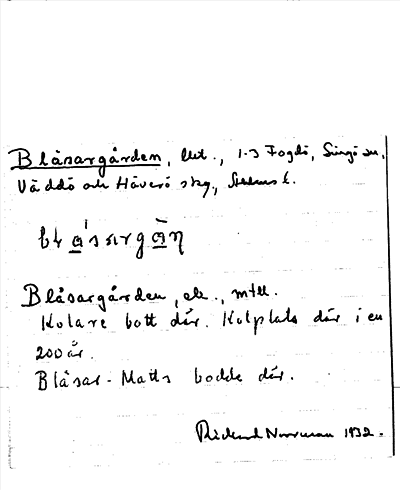 Blåsargården, lht., 1-3 Fogdö, Singö sn,
Väddö och Häverö skg., Sthms l.
Blåsargården, mtll.
Kolare bott där. Kolplats där i en
200 år.
Blåsar-Matts bodde där.
Rickard Norrman 1932.